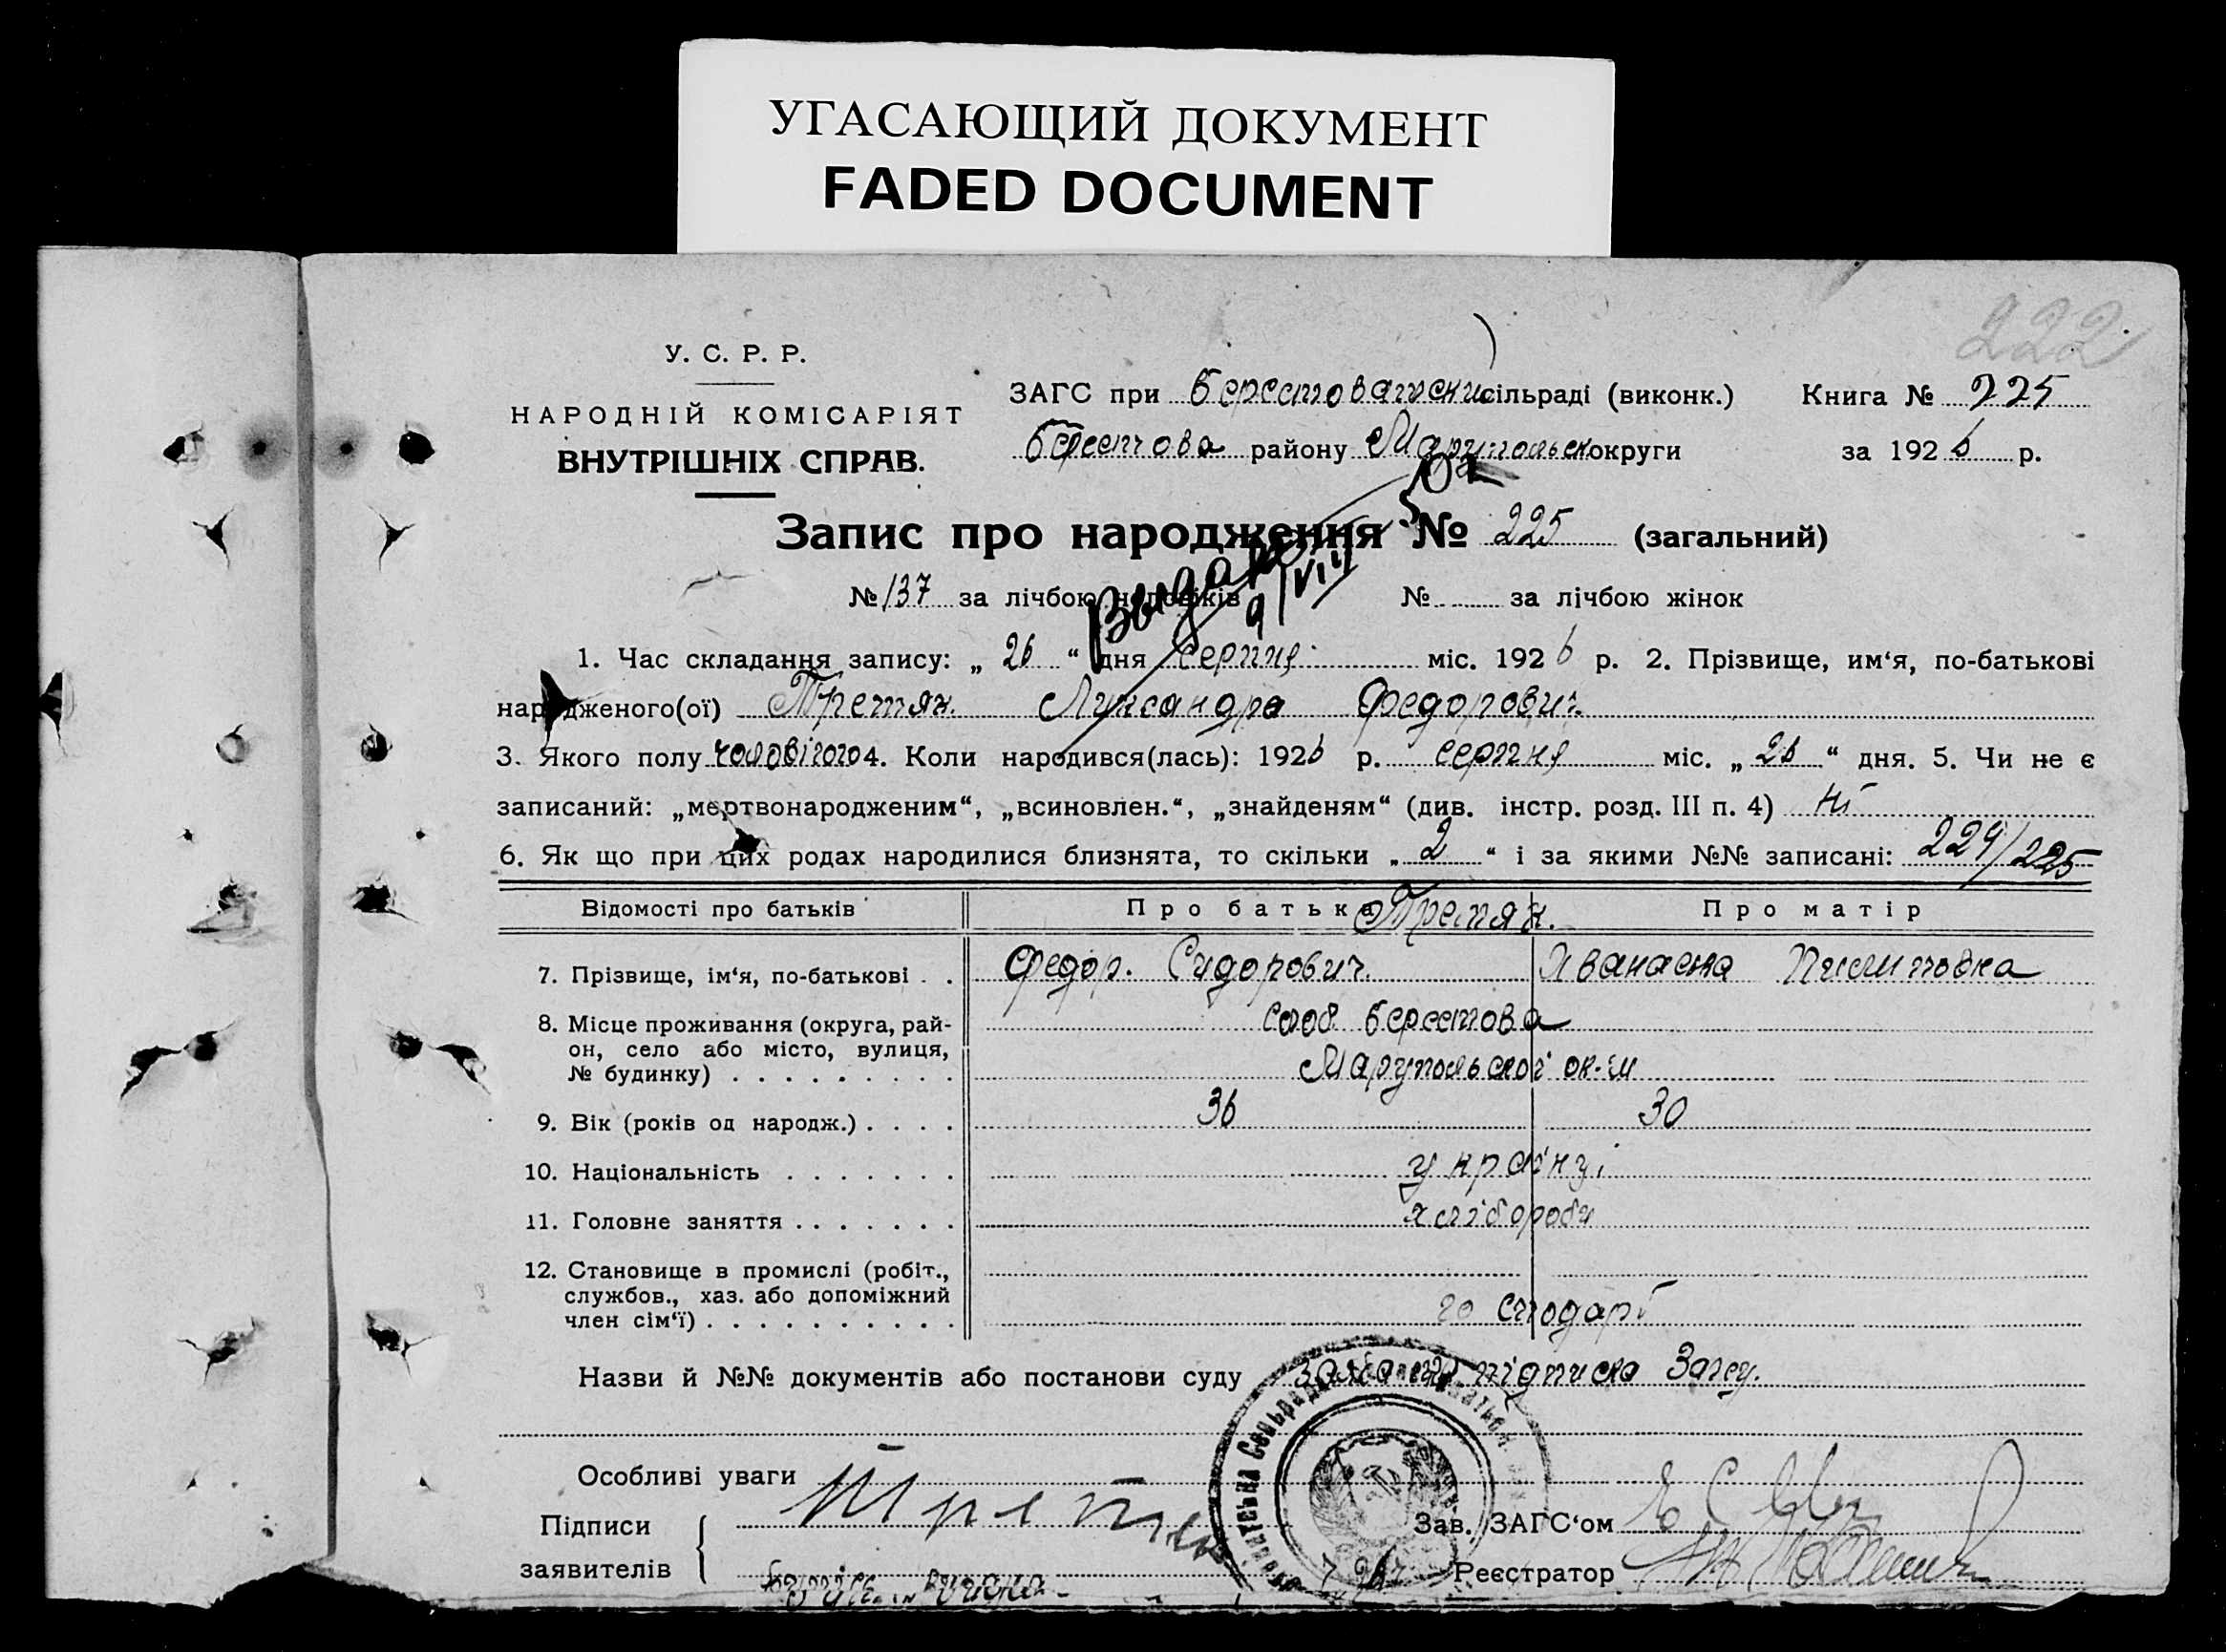 УГАСАЮЩИЙ ДОКУМЕНТ
FADED DOCUMENT
222
У. С. Р. Р.
НАРОДНІЙ КОМІСАРІЯТ
ВНУТРІШНІХ СПРАВ.
ЗАГС при Берестоватский сільраді (виконк.) Книга № 225
Берестова району Маріупольск округи за 1926 р.
Запис про народження № 225 (загальний)
№ 137 за лічбою чоловіків № за лічбою жінок
9/VIII
1. Час складання запису: „ 26 “ дня серпня міс. 1926 р. 2. Прізвище, им‘я, по-батькові
народженого(ої) Третяк. Федорович
3. Якого полу чоловічого 4. Коли народився(лась): 1926 р. серпня міс. „ 26 “ дня. 5. Чи не є
записаний: „мертвонародженим“, „всиновлен.“, „знайденям“ (див. інстр. розд. III п. 4) Ні
6. Як що при цих родах народилися близнята, то скільки „ 2 “ і за якими №№ записані: 224/225
Відомості про батьків Про батька Третяк. Про матір
7. Прізвище, ім‘я, по-батькові . . Федор. Сидорович.
8. Місце проживання (округа, рай- слоб. Берестова
он, село або місто, вулиця,
№ будинку) . . . . . . . . . Маріупольскої ок-и
9. Вік (років од народж.) . . . . 36 30
10. Національність . . . . . . . українці
11. Головне заняття . . . . . . . хлібороби
12. Становище в промислі (робіт.,
службов., хаз. або допоміжний
член сім‘ї) . . . . . . . . . . господарі
Назви й №№ документів або постанови суду підписка Загсу.
Особливі уваги
Підписи Третяк
заявителів
Зав. ЗАГС‘ом
Реєстратор